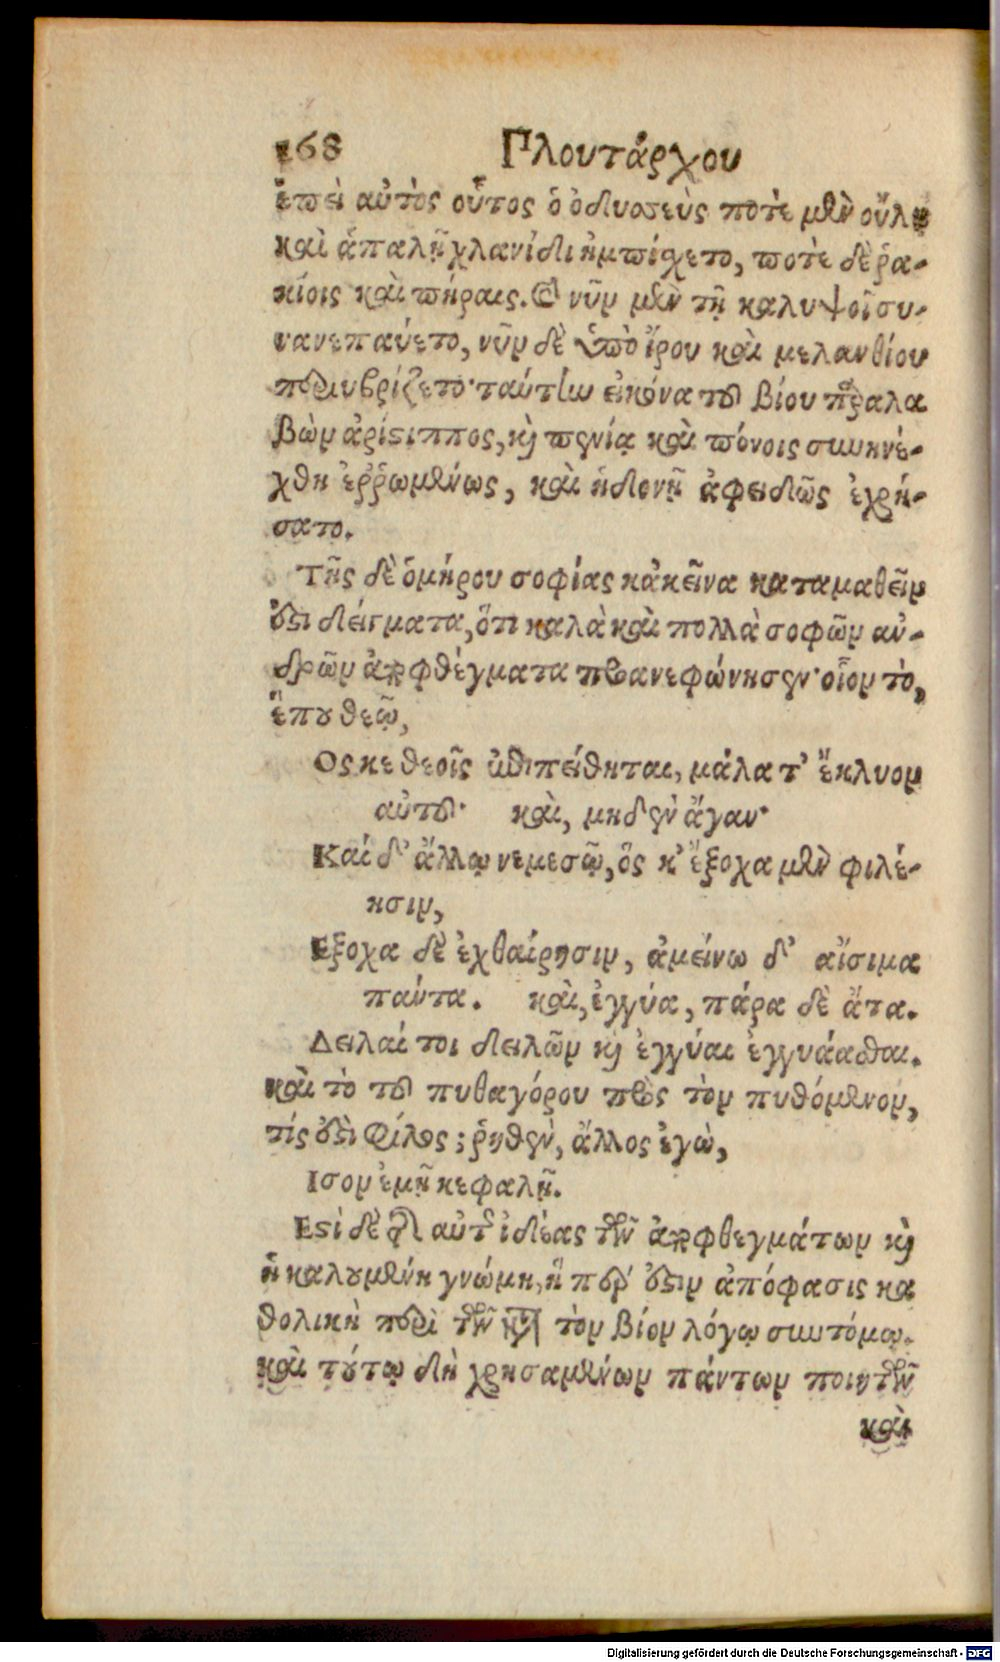 168 Πλουτάρχου
ἐπεὶ αὐτὸς οὗτος ὁ ὀδυσσεὺς ποτὲ μὲν οὔλῃ
καὶ ἁπαλῇ χλανίδι ἠμπίχετο, ποτὲ δὲ ῥα-
κίοις καὶ πήραις. Καὶ νῦν μὲν τῇ καλυψοῖ συ-
νανεπαύετο, νῦν δὲ ὑπὸ ἴρου καὶ μελανθίου
περιυβρίζετο· ταύτην εἰκόνα τοῦ βίου παραλα
βὼν ἀρίστιππος, καὶ πενίᾳ καὶ πόνοις συνηνέ-
χθη ἐῤῥωμένως, καὶ ἡδονῇ ἀφειδῶς ἐχρή-
σατο.
Τῆς δὲ ὁμήρου σοφίας κἀκεῖνα καταμαθεῖν
ἔστι δείγματα, ὅτι καλὰ καὶ πολλὰ σοφῶν ἀν-
δρῶν ἀποφθέγματα προανεφώνησεν· οἷον τὸ,
ἕπου θεῷ,
Ος κε θεοῖς ἐπιπείθηται, μάλα τ’ ἔκλυον
αὐτοῦ· καὶ, μηδὲν ἄγαν·
Καί δ’ ἄλλῳ νεμεσῶ, ὅς κ’ ἔξοχα μὲν φιλέ-
ησιν,
Εξοχα δὲ ἐχθαίρησιν, ἀμείνω δ’ αἴσιμα
πάντα. καὶ, ἐγγύα, πάρα δὲ ἄτα.
Δειλαί τοι δειλῶν καὶ ἐγγύαι ἐγγυάασθαι.
καὶ τὸ τοῦ πυθαγόρου πρὸς τὸν πυθόμενον,
τίς ἐστὶ φίλος; ῥηθὲν, ἄλλος ἐγὼ,
Ισον ἐμῇ κεφαλῇ.
Εστὶ δὲ τῆς αὐτῆς ἰδέας τῶν ἀποφθεγμάτων καὶ
ἡ καλουμένη γνώμη, ἥ περ ἐστιν ἀπόφασις κα
θολικὴ περὶ τῶν κατὰ τὸν βίον λόγῳ συντόμῳ.
καὶ τούτῳ δὴ χρησαμένων πάντων ποιητῶν
καὶ
Digitalisierung gefördert durch die Deutsche Forschungsgemeinschaft - DFG